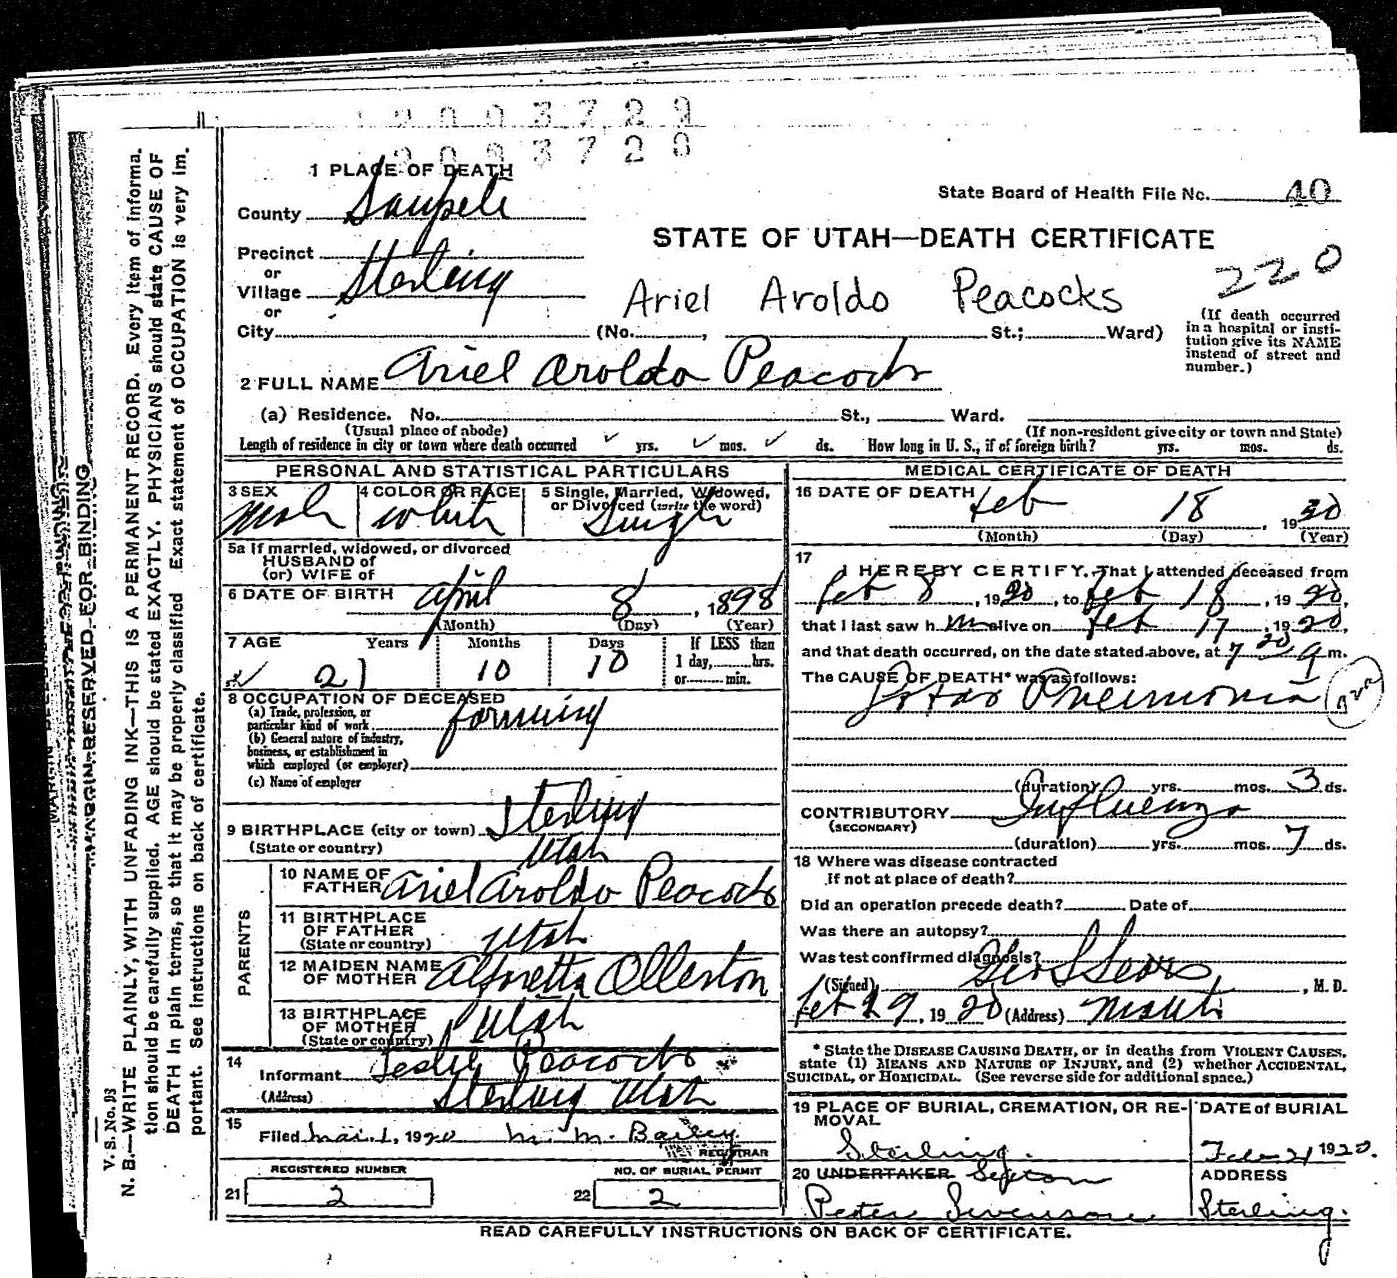 2003729
2003720
1 PLACE OF DEATH
County Sanpete
State Board of Health File No. 40
STATE OF UTAH—DEATH CERTIFICATE
220
Precinct
or
Village Sterling
or
City (No. , St.; Ward)
Ariel Aroldo Peacocks
(If death occurred in a hospital or institution give its NAME instead of street and number.)
2 FULL NAME Ariel Aroldo Peacock
(a) Residence. No. St., Ward.
(Usual place of abode) (If non-resident give city or town and State)
Length of residence in city or town where death occurred yrs. mos. ds. How long in U. S., if of foreign birth? yrs. mos. ds.
PERSONAL AND STATISTICAL PARTICULARS
3 SEX Male 4 COLOR OR RACE White 5 Single, Married, Widowed, or Divorced (write the word) Single
5a If married, widowed, or divorced
HUSBAND of
(or) WIFE of
6 DATE OF BIRTH April 8, 1898
(Month) (Day) (Year)
7 AGE Years Months Days If LESS than
21 10 10 1 day, hrs.
or min.
8 OCCUPATION OF DECEASED
(a) Trade, profession, or
particular kind of work farming
(b) General nature of industry,
business, or establishment in
which employed (or employer)
(c) Name of employer
9 BIRTHPLACE (city or town) Sterling
(State or country) Utah
PARENTS
10 NAME OF
FATHER Ariel Aroldo Peacock
11 BIRTHPLACE
OF FATHER
(State or country) Utah
12 MAIDEN NAME
OF MOTHER Ollerton
13 BIRTHPLACE
OF MOTHER
(State or country) Utah
14
Informant Leslie Peacock
(Address) Sterling Utah
15
Filed Mar. 1, 1920 M. M. Bailey
REGISTRAR
REGISTERED NUMBER NO. OF BURIAL PERMIT
21 2 22 2
MEDICAL CERTIFICATE OF DEATH
16 DATE OF DEATH Feb 18, 1920
(Month) (Day) (Year)
17
I HEREBY CERTIFY, That I attended deceased from
Feb 8, 1920, to Feb 18, 1920,
that I last saw him alive on Feb 17, 1920,
and that death occurred, on the date stated above, at 7 20 m.
The CAUSE OF DEATH* was as follows:
Lobar Pneumonia
(duration) yrs. mos. 3 ds.
CONTRIBUTORY Influenza
(SECONDARY)
(duration) yrs. mos. 7 ds.
18 Where was disease contracted
If not at place of death?
Did an operation precede death? Date of
Was there an autopsy?
Was test confirmed diagnosis?
(Signed) Geo L Sears, M. D.
Feb 19, 1920 (Address) Manti
* State the DISEASE CAUSING DEATH, or in deaths from VIOLENT CAUSES,
state (1) MEANS AND NATURE OF INJURY, and (2) whether ACCIDENTAL,
SUICIDAL, or HOMICIDAL. (See reverse side for additional space.)
19 PLACE OF BURIAL, CREMATION, OR RE- DATE of BURIAL
MOVAL
Sterling Feb 21 1920.
20 UNDERTAKER Sexton ADDRESS
Peter Swenson Sterling.
READ CAREFULLY INSTRUCTIONS ON BACK OF CERTIFICATE.
MARGIN RESERVED FOR BINDING
V. S. No. 93
N. B.—WRITE PLAINLY, WITH UNFADING INK—THIS IS A PERMANENT RECORD. Every item of informa-
tion should be carefully supplied. AGE should be stated EXACTLY. PHYSICIANS should state CAUSE OF
DEATH in plain terms, so that it may be properly classified. Exact statement of OCCUPATION is very im-
portant. See instructions on back of certificate.